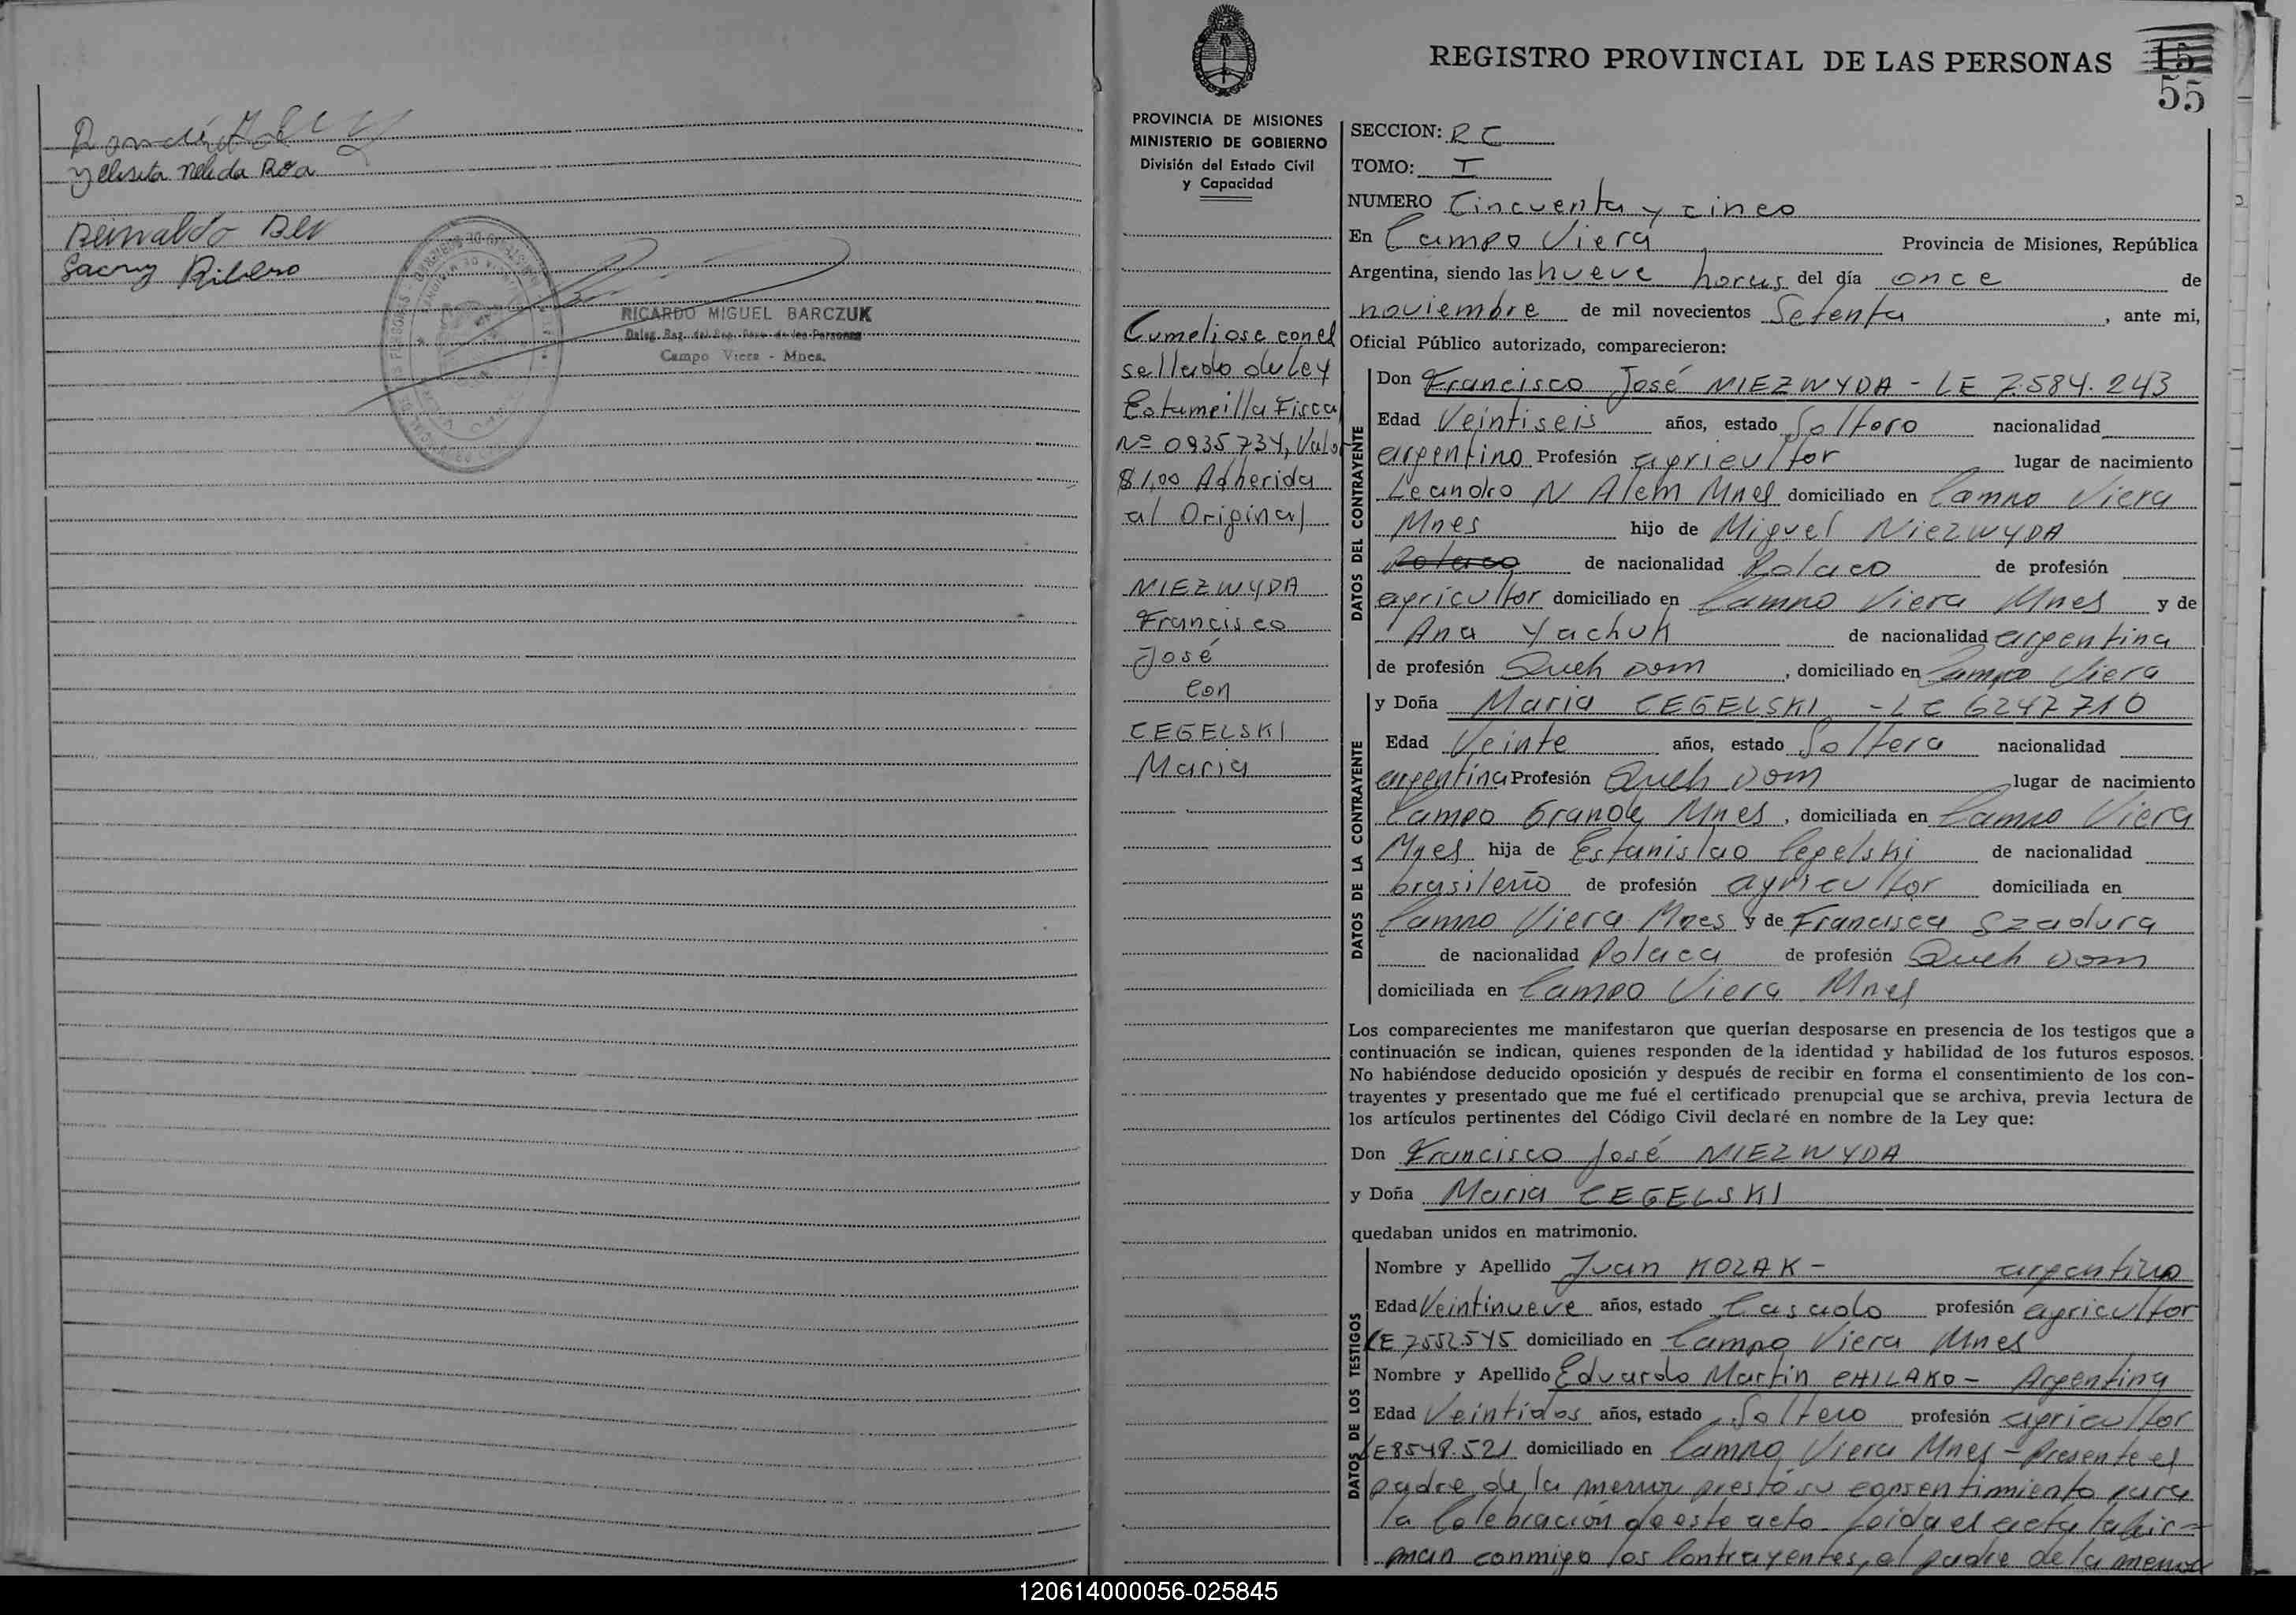 Yelisita Nelida Roa
Reinaldo
RICARDO MIGUEL BARCZUK
Campo Viera - Mnes.
REGISTRO PROVINCIAL DE LAS PERSONAS
15
55
PROVINCIA DE MISIONES
MINISTERIO DE GOBIERNO
División del Estado Civil
y Capacidad
Cumpliose con el
sellado de Ley
Estampilla Fisca
Nº 0935734, Valor
$ 1,00 Adherida
al Original
NIEZWYDA
Francisco
José
con
CEGELSKI
Maria
SECCION: RC
TOMO: I
NUMERO Cincuenta y cinco
En Campo Viera Provincia de Misiones, República
Argentina, siendo las nueve horas del día once de
noviembre de mil novecientos Setenta, ante mi,
Oficial Público autorizado, comparecieron:
DATOS DEL CONTRAYENTE
Don Francisco José NIEZWYDA - LE 7.584.243
Edad Veintiseis años, estado Soltero nacionalidad
argentino Profesión agricultor lugar de nacimiento
Leandro N Alem Mnes domiciliado en Campo Viera
Mnes hijo de Miguel NIEZWYDA
Polaco de nacionalidad Polaco de profesión
agricultor domiciliado en Campo Viera Mnes y de
Ana Yachuk de nacionalidad argentina
de profesión Queh Dom, domiciliado en Campo Viera
DATOS DE LA CONTRAYENTE
y Doña Maria CEGELSKI - LC 6247710
Edad Veinte años, estado Soltera nacionalidad
argentina Profesión Queh Dom lugar de nacimiento
Campo Grande Mnes, domiciliada en Campo Viera
Mnes hija de Estanislao Cegelski de nacionalidad
brasileño de profesión agricultor domiciliada en
Campo Viera Mnes y de Francisca Szadura
de nacionalidad Polaca de profesión Queh Dom
domiciliada en Campo Viera Mnes
Los comparecientes me manifestaron que querían desposarse en presencia de los testigos que a
continuación se indican, quienes responden de la identidad y habilidad de los futuros esposos.
No habiéndose deducido oposición y después de recibir en forma el consentimiento de los con-
trayentes y presentado que me fué el certificado prenupcial que se archiva, previa lectura de
los artículos pertinentes del Código Civil declaré en nombre de la Ley que:
Don Francisco José NIEZWYDA
y Doña Maria CEGELSKI
quedaban unidos en matrimonio.
DATOS DE LOS TESTIGOS
Nombre y Apellido Juan KOZAK - argentino
Edad Veintinueve años, estado Casado profesión agricultor
LE 7552545 domiciliado en Campo Viera Mnes
Nombre y Apellido Eduardo Martin CHILAKO - Argentina
Edad Veintidos años, estado Soltero profesión agricultor
LE 8548.521 domiciliado en Campo Viera Mnes - Presente el
padre de la menor prestó su consentimiento para
la Celebración de este acto. Leida el acta la fir-
man conmigo los Contrayentes, el padre de la menor
120614000056-025845